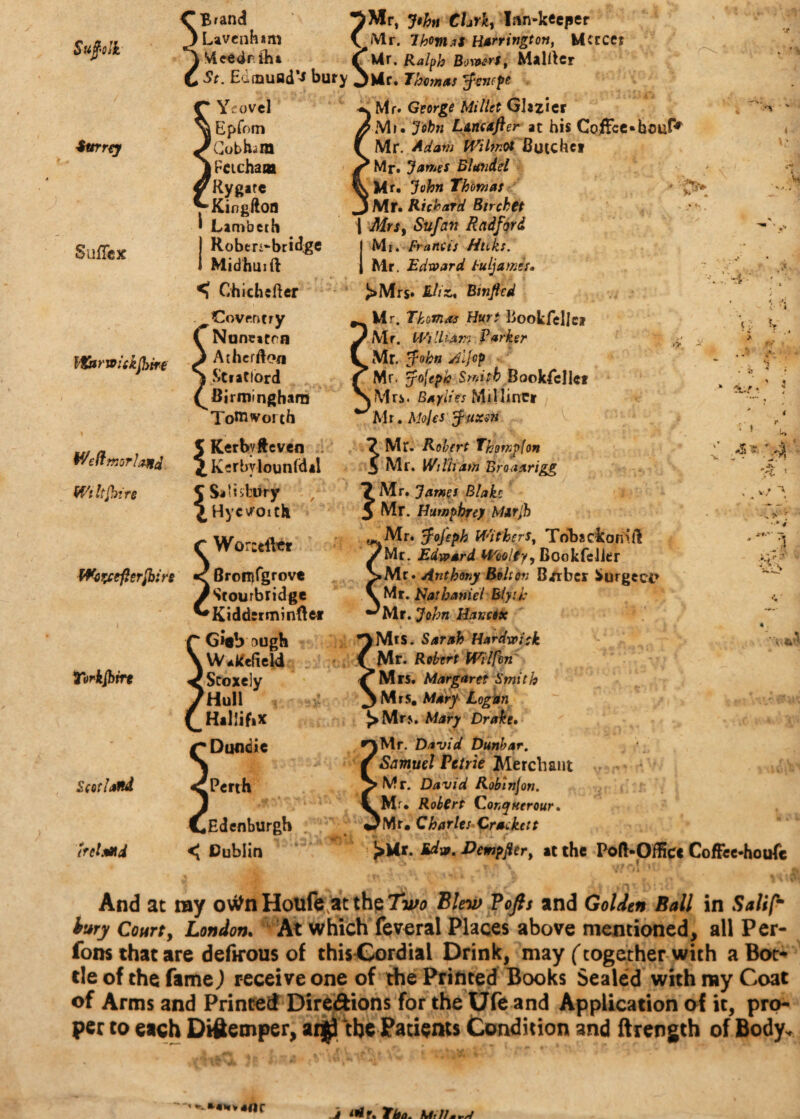 Suffolk
Brand Mr, John Clark, Inn-keeper
Lavenham Mr. Thomas Harrington, Mercer
Meedr sha Mr. Ralph Bowers, Malster
St. Edmund's bury Mr. Thomas Jenepe
Surrey
Yeovel Mr. George Millet Glazier
Epsom Mr. John Lancaster at his Coffee-house
Cobham Mr. Adam Wilmot Butcher
Fetcham Mr. James Blundel
Rygate Mr. John Thomas
Kingston Mr. Richard Birchet
Lambeth Mrs, Susan Radford
Sussex
Robert-bridge Mr. Francis Hicks.
Midhurst Mr. Edward Fuljames.
Chichester Mrs. Eliz, Binsted
Warwickshire
Coventry Mr. Thomas Hurt Bookseller
Nuneaton Mr. William Parker
Atherston Mr. John Alsop
Stratford Mr. Joseph Smith Bookseller
Birmingham Mrs. Baylies Milliner
Tomworth Mr. Moses Juxon
Westmorland
Kerbysteven Mr. Robert Thompson
Kerbylounsdal Mr. William Broadrigg
Wiltshire
Salisbury Mr. James Blake
Hyeworth Mr. Humphrey Marsh
Worcestershire
Worcester Mr. Joseph Withers, Tobackonist
Mr. Edward Wooley, Bookseller
Bromsgrove Mr. Anthony Bolton Barber Surgeon
Stourbridge Mr. Nathaniel Blyth
Kidderminster Mr. John Hancox
Yorkshire
Gisb ough Mrs. Sarah Hardwick
Wakefield Mr. Robert Wilson
Stoxely Mrs. Margaret Smith
Hull Mrs. Mary Logan
Hallifax Mrs. Mary Drake.
Scotland
Dundie Mr. David Dunbar.
Samuel Petrie Merchant
Perth Mr. David Robinson.
Mr. Robert Conquerour.
Edenburgh Mr. Charles Crackett
Ireland Dublin Mr. Edw. Dempster, at the Post-Office Coffee-house
And at my own House at the Two Blew Posts and Golden Ball in Salis-
bury Court, London. At which several Places above mentioned, all Per-
sons that are desirous of this Cordial Drink, may (together with a Bot-
tle of the same) receive one of the Printed Books Sealed with my Coat
of Arms and Printed Directions for the Use and Application of it, pro-
per to each Distemper, and the Patients Condition and strength of Body.
Mr. Tho. Millard